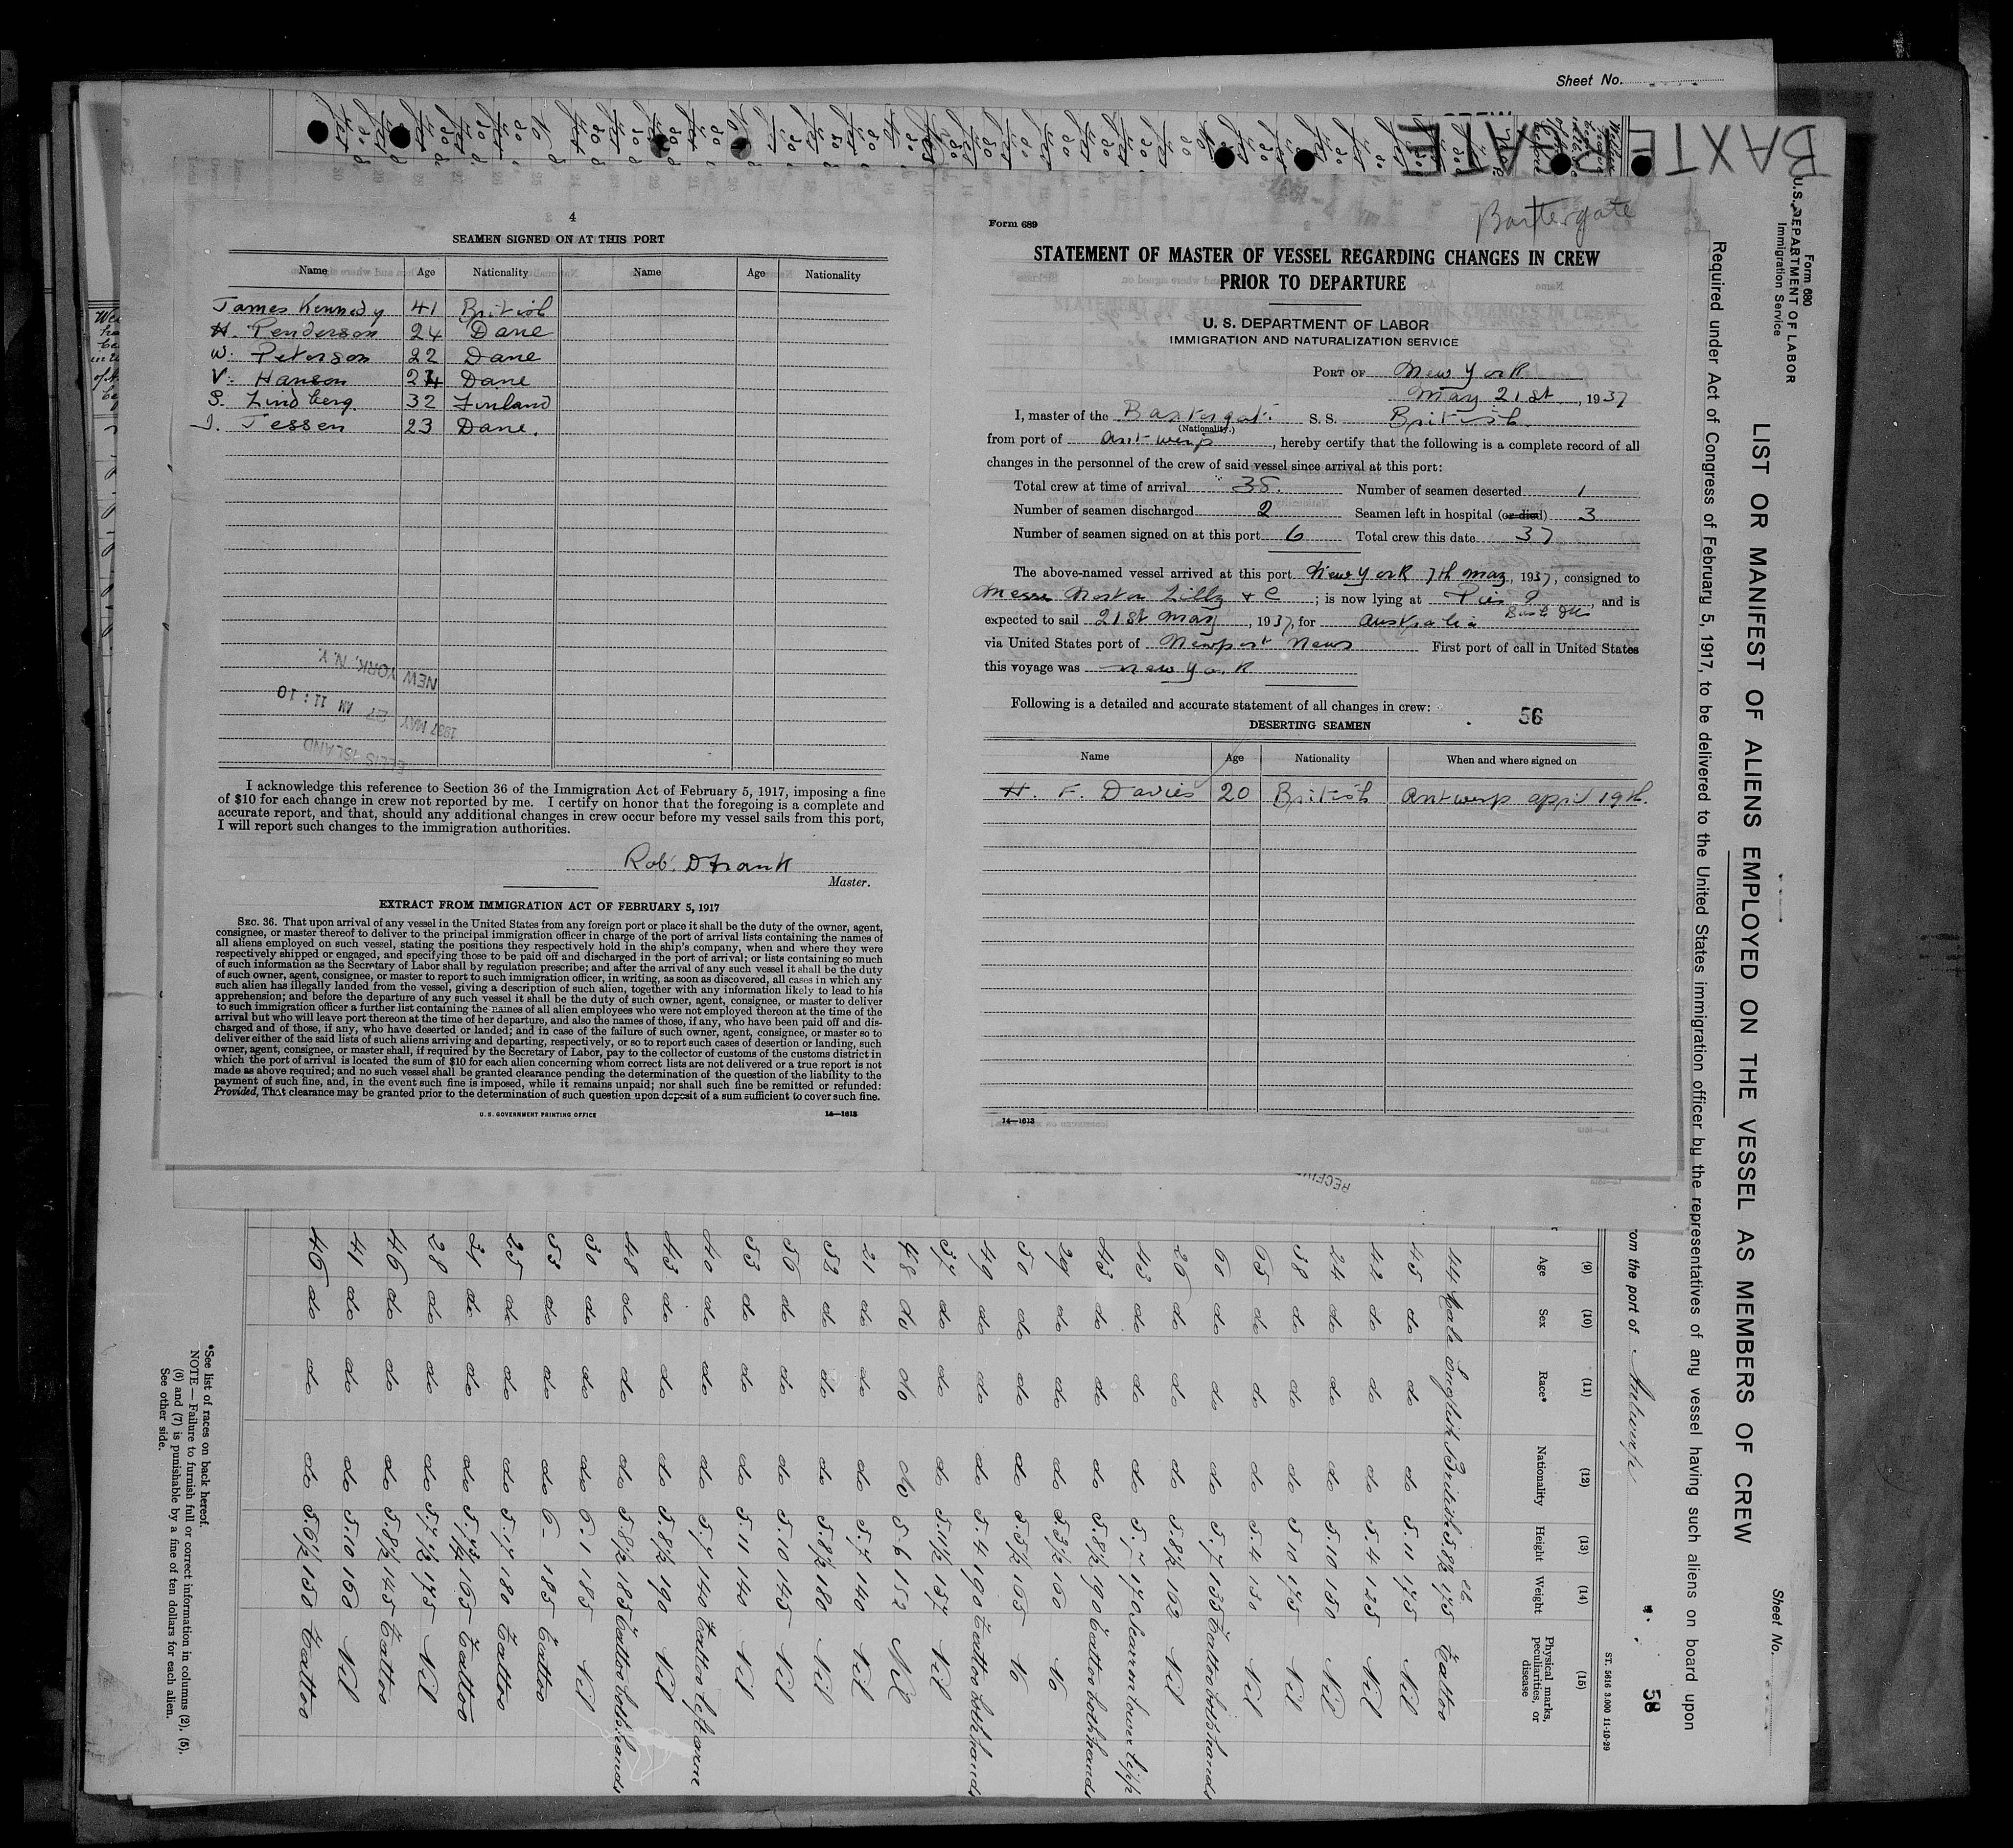 Sheet No.
BAXTE
4
SEAMEN SIGNED ON AT THIS PORT
Name Age Nationality Name Age Nationality
James Kennedy 41 British
H. Penderson 24 Dane
W. Peterson 22 Dane
V. Hanson 24 Dane
S. Lindberg 32 Finland
J. Jessen 23 Dane.
NEW YORK, N.Y.
1937 MAY 27 AM 11:10
ELLIS ISLAND
I acknowledge this reference to Section 36 of the Immigration Act of February 5, 1917, imposing a fine
of $10 for each change in crew not reported by me. I certify on honor that the foregoing is a complete and
accurate report, and that, should any additional changes in crew occur before my vessel sails from this port,
I will report such changes to the immigration authorities.
Rob. D Frank
Master.
EXTRACT FROM IMMIGRATION ACT OF FEBRUARY 5, 1917
SEC. 36. That upon arrival of any vessel in the United States from any foreign port or place it shall be the duty of the owner, agent,
consignee, or master thereof to deliver to the principal immigration officer in charge of the port of arrival lists containing the names of
all aliens employed on such vessel, stating the positions they respectively hold in the ship's company, when and where they were
respectively shipped or engaged, and specifying those to be paid off and discharged in the port of arrival; or lists containing so much
of such information as the Secretary of Labor shall by regulation prescribe; and after the arrival of any such vessel it shall be the duty
of such owner, agent, consignee, or master to report to such immigration officer, in writing, as soon as discovered, all cases in which any
such alien has illegally landed from the vessel, giving a description of such alien, together with any information likely to lead to his
apprehension; and before the departure of any such vessel it shall be the duty of such owner, agent, consignee, or master to deliver
to such immigration officer a further list containing the names of all alien employees who were not employed thereon at the time of the
arrival but who will leave port thereon at the time of her departure, and also the names of those, if any, who have been paid off and dis-
charged and of those, if any, who have deserted or landed; and in case of the failure of such owner, agent, consignee, or master so to
deliver either of the said lists of such aliens arriving and departing, respectively, or so to report such cases of desertion or landing, such
owner, agent, consignee, or master shall, if required by the Secretary of Labor, pay to the collector of customs of the customs district in
which the port of arrival is located the sum of $10 for each alien concerning whom correct lists are not delivered or a true report is not
made as above required; and no such vessel shall be granted clearance pending the determination of the question of the liability to the
payment of such fine, and, in the event such fine is imposed, while it remains unpaid; nor shall such fine be remitted or refunded:
Provided, That clearance may be granted prior to the determination of such question upon deposit of a sum sufficient to cover such fine.
U. S. GOVERNMENT PRINTING OFFICE 14—1613
Baxtergate
Form 689
STATEMENT OF MASTER OF VESSEL REGARDING CHANGES IN CREW
PRIOR TO DEPARTURE
U. S. DEPARTMENT OF LABOR
IMMIGRATION AND NATURALIZATION SERVICE
PORT OF New York
May 21st, 1937
I, master of the Baxtergate S. S. British
(Nationality.)
from port of Antwerp, hereby certify that the following is a complete record of all
changes in the personnel of the crew of said vessel since arrival at this port:
Total crew at time of arrival Number of seamen deserted 1
Number of seamen discharged 2 Seamen left in hospital (or died) 3
Number of seamen signed on at this port 6 Total crew this date 37
The above-named vessel arrived at this port New York 7th May, 1937, consigned to
Messrs Norton Lilly & C ; is now lying at Pier 9, and is
expected to sail 21st May, 1937, for Australia
via United States port of Newport News First port of call in United States
this voyage was New York
Following is a detailed and accurate statement of all changes in crew:
56
DESERTING SEAMEN
Name Age Nationality When and where signed on
H. F. Davies 20 British Antwerp April 19th.
14—1613
Form 680
U.S. DEPARTMENT OF LABOR
Immigration Service
Sheet No.
LIST OR MANIFEST OF ALIENS EMPLOYED ON THE VESSEL AS MEMBERS OF CREW
Required under Act of Congress of February 5, 1917, to be delivered to the United States immigration officer by the representatives of any vessel having such aliens on board upon
58
rom the port of Antwerp
ST. 5616 3.000 11-10-29
(9) (10) (11) (12) (13) (14) (15)
Age Sex Race* Nationality Height Weight Physical marks, peculiarities, or disease
44 Male English British 5.8½ 175 Tattoo
45 do do do 5.11 175 Nil
42 do do do 5.4 125 Nil
24 do do do 5.10 150 Nil
38 do do do 5.10 175 Nil
65 do do do 5.4 130 Nil
60 do do do 5.7 135 Tattoo both hands
26 do do do 5.8½ 162 Nil
43 do do do 5.7 170 Scar on lower lipp
43 do do do 5.8½ 190 Tattoo both hands
29 do do do 5.3½ 160 No
50 do do do 5.5½ 165 No
49 do do do 5.4 190 Tattoo both hands
37 do do do 5.11½ 157 Nil
48 do do do 5.6 152 Nil
21 do do do 5.7 140 Nil
52 do do do 5.8½ 180 Nil
56 do do do 5.10 145 Nil
53 do do do 5.11 140 Nil
40 do do do 5.7 140 Tattoo left arm
43 do do do 5.8½ 190 Nil
48 do do do 5.8½ 185 Tattoo both hands
30 do do do 6.1 185 Nil
53 do do do 6- 185 Tattoo
25 do do do 5.7 180 Tattoo
31 do do do 5.7½ 165 Tattoo
28 do do do 5.7½ 175 Nil
46 do do do 5.8½ 145 Tattoo
41 do do do 5.10 160 Nil
46 do do do 5.6½ 150 Tattoo
*See list of races on back hereof.
NOTE—Failure to furnish full or correct information in columns (2), (5),
(6) and (7) is punishable by a fine of ten dollars for each alien.
See other side.